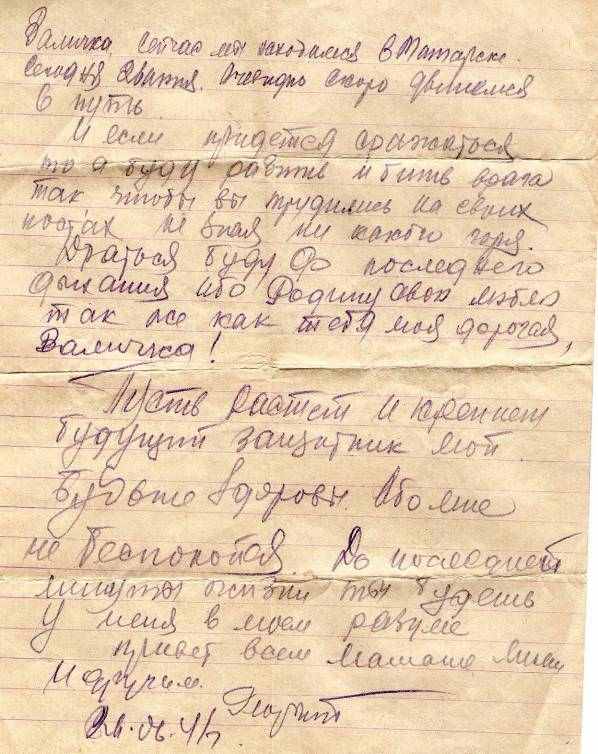 Валичка, сейчас мы находимся в Татарске.
Сегодня 26 июня. Очевидно скоро двинемся
в путь
И если придется сражаться
то я буду давить и бить врага
так чтобы вы трудились на своих
постах не зная ни какого горя.
Драться буду до последнего
дыхания ибо Родину свою люблю
так же как тебя моя дорогая,
Валичка!
Пусть растет и крепнет
будущий защитник мой
Будьте здоровы. Обо мне
не беспокойся. До последней
минуты жизни ты будешь
у меня в моем разуме
привет всем мамаше
и другим.
26.06.41г